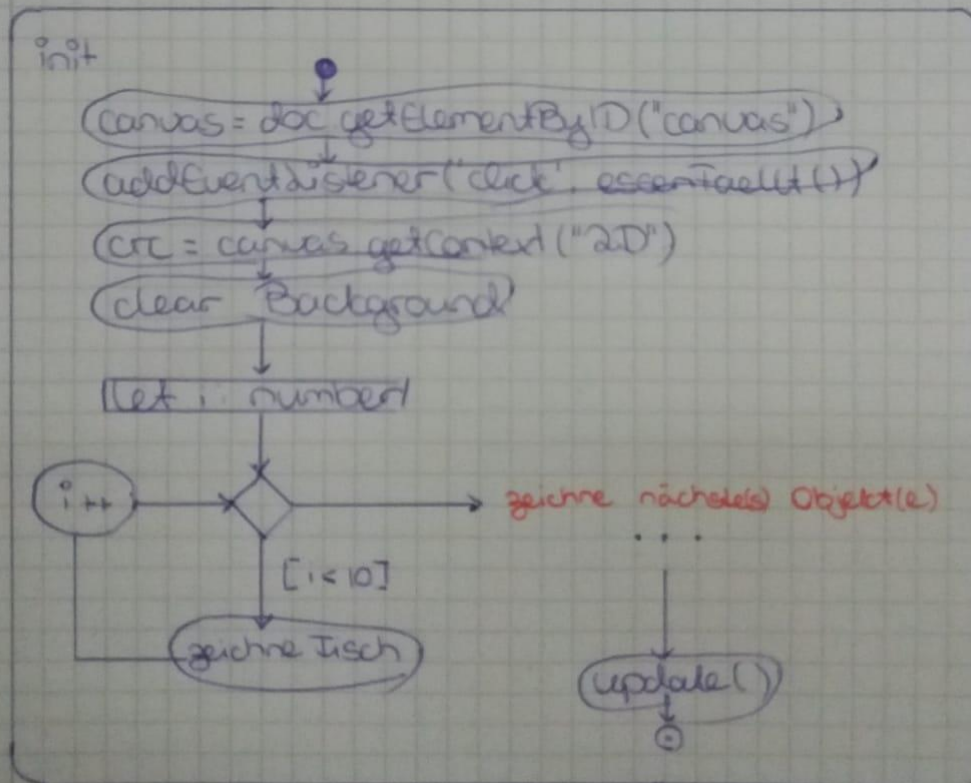 init
canvas = doc getElementByID("canvas")
addEventListener("click", essenFaellt())
crc = canvas getContext("2D")
clear Background
let i number
i++
zeichne nächste(s) Objekt(e)
...
[i<10]
zeichne Tisch
update()